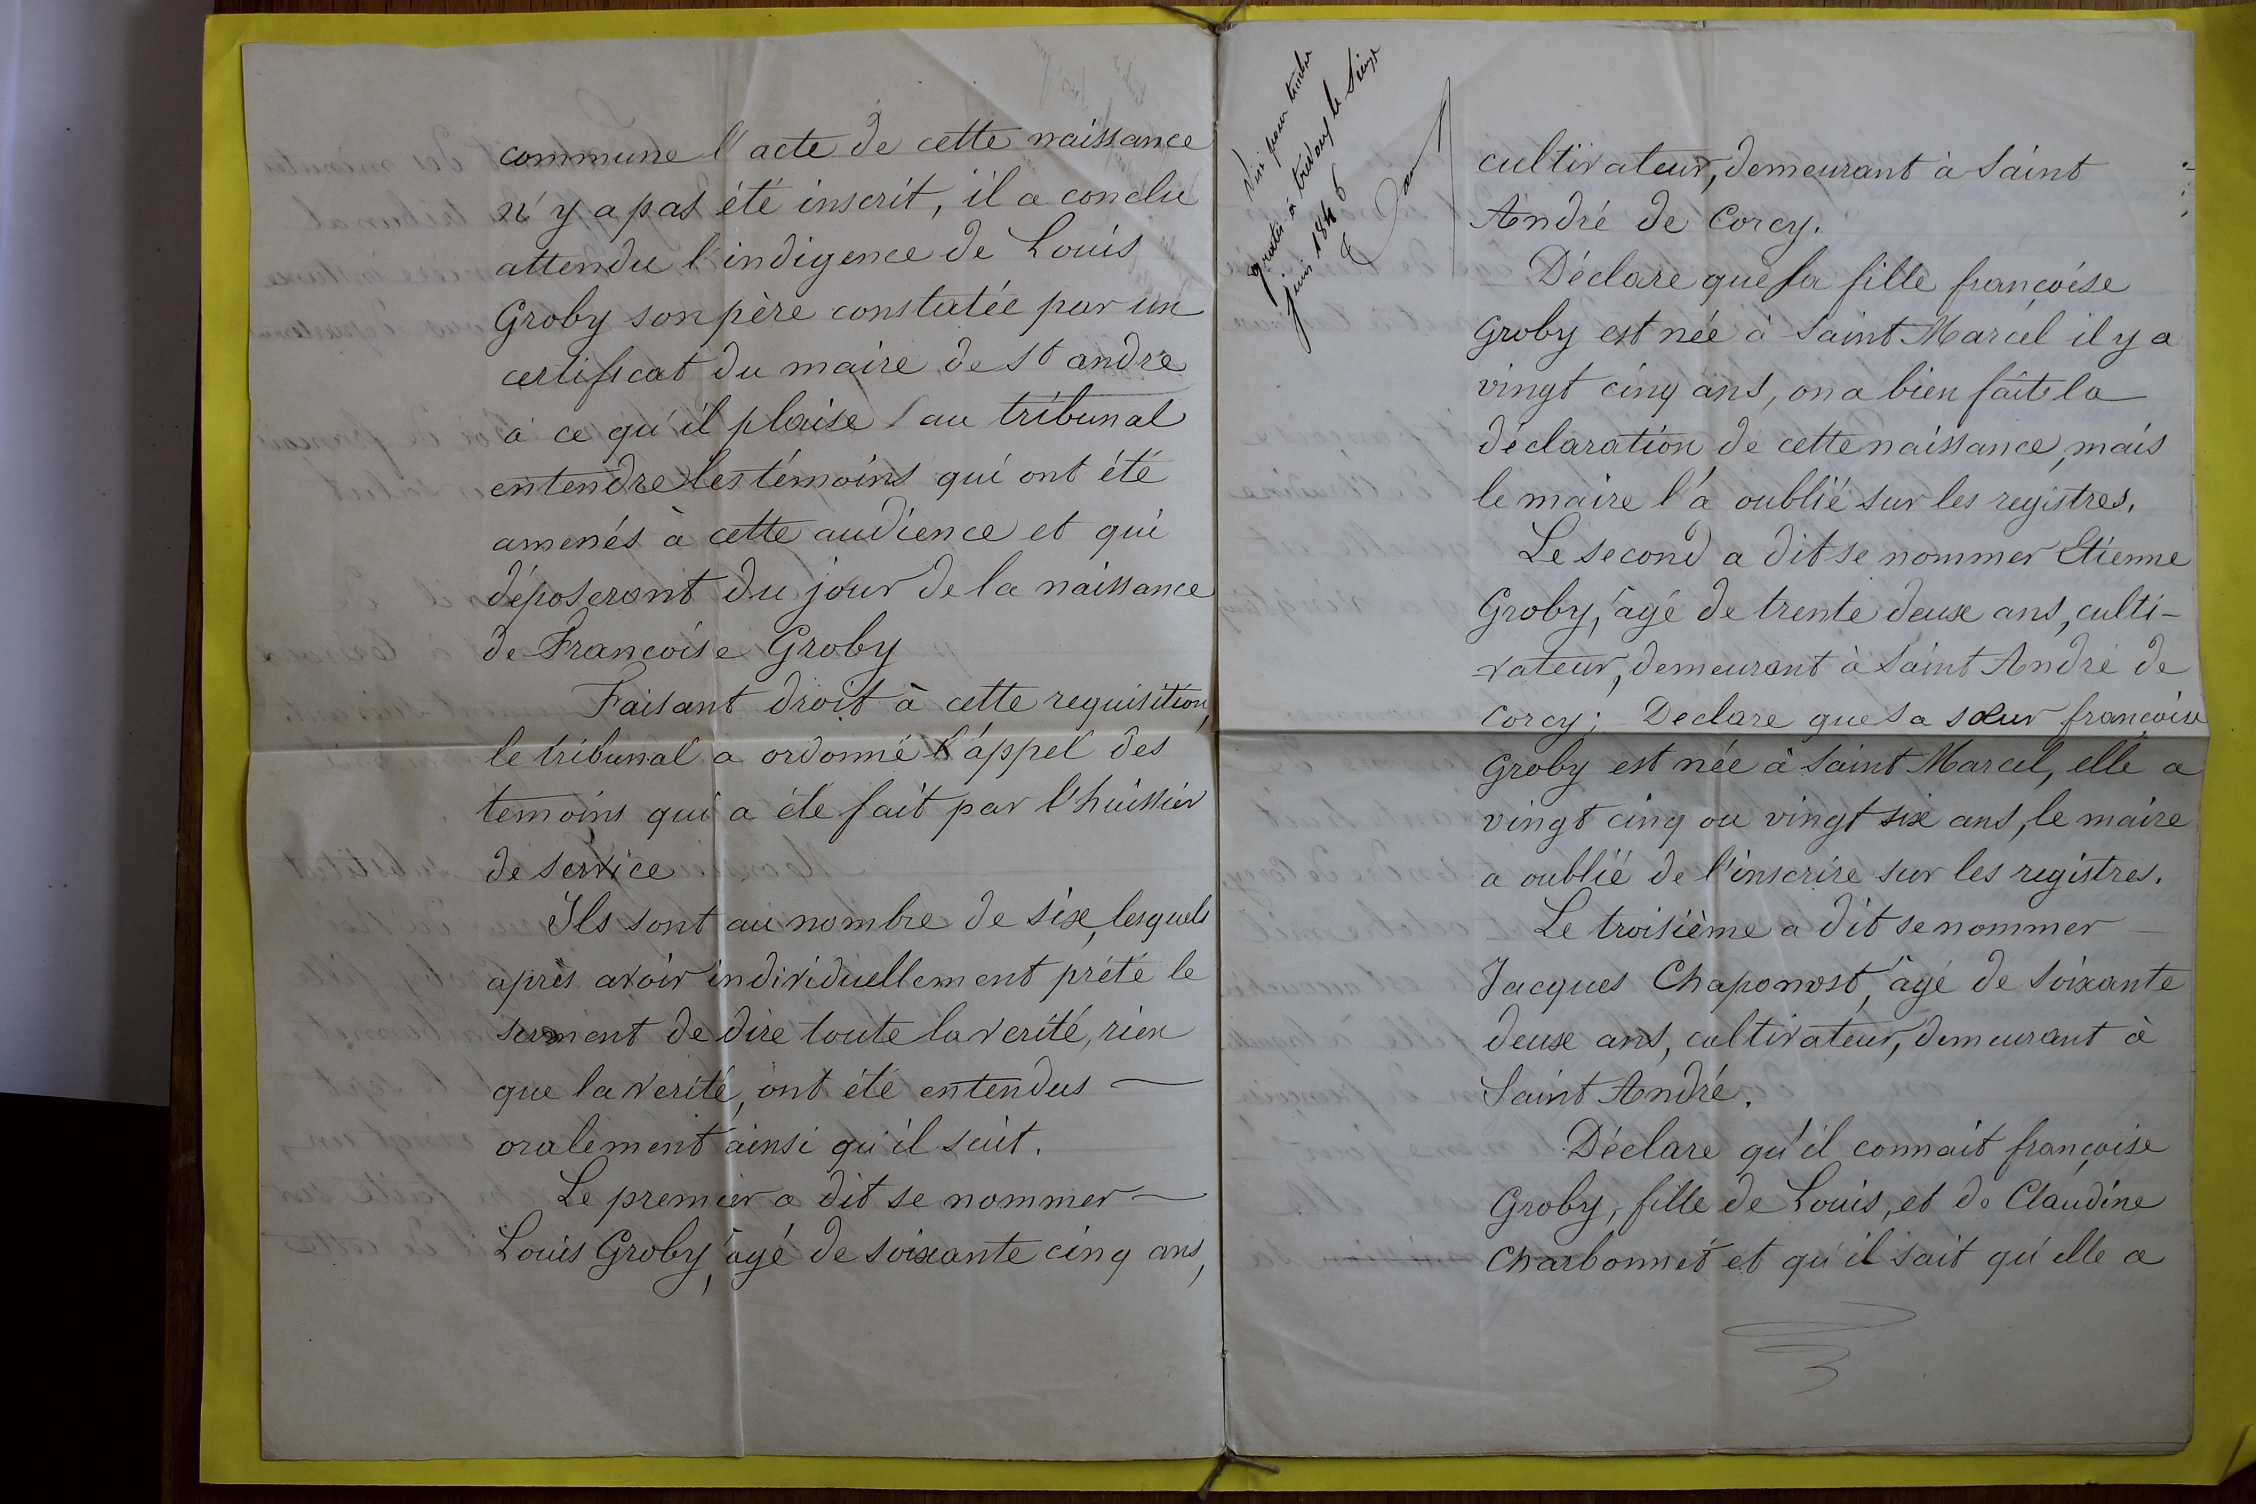 commune l'acte de cette naissance
n'y a pas été inscrit, il a conclu
attendu l'indigence de Louis
Groby son père constatée par un
certificat du maire de St andré
à ce qu'il plaise au tribunal
entendre les témoins qui ont été
amenés à cette audience et qui
déposeront du jour de la naissance
de Françoise Groby
Faisant droit à cette requisition,
le tribunal a ordonné l'appel des
temoins qui a été fait par l'huissier
de service
Ils sont au nombre de six, lesquels
après avoir individuellement prêté le
serment de dire toute la verité, rien
que la verité, ont été entendus —
oralement ainsi qu'il suit.
Le premier a dit se nommer —
Louis Groby, âgé de soixante cinq ans,
Visé pour timbre
gratis à trévoux le
juin 1846
cultivateur, demeurant à Saint
André de Corcy.
Déclare que sa fille françoise
Groby est née à Saint Marcel il y a
vingt cinq ans, on a bien fait la
déclaration de cette naissance, mais
le maire l'a oublié sur les registres.
Le second a dit se nommer Etienne
Groby, âgé de trente deux ans, culti-
vateur, demeurant à Saint André de
Corcy; Declare que sa sœur françoise
Groby est née à Saint Marcel, elle a
vingt cinq ou vingt six ans, le maire
a oublié de l'inscrire sur les registres.
Le troisième a dit se nommer —
Jacques Chaponost, âgé de soixante
deux ans, cultivateur, demeurant à
Saint André.
Déclare qu'il connait françoise
Groby, fille de Louis, et de Claudine
Charbonnet et qu'il sait qu'elle a